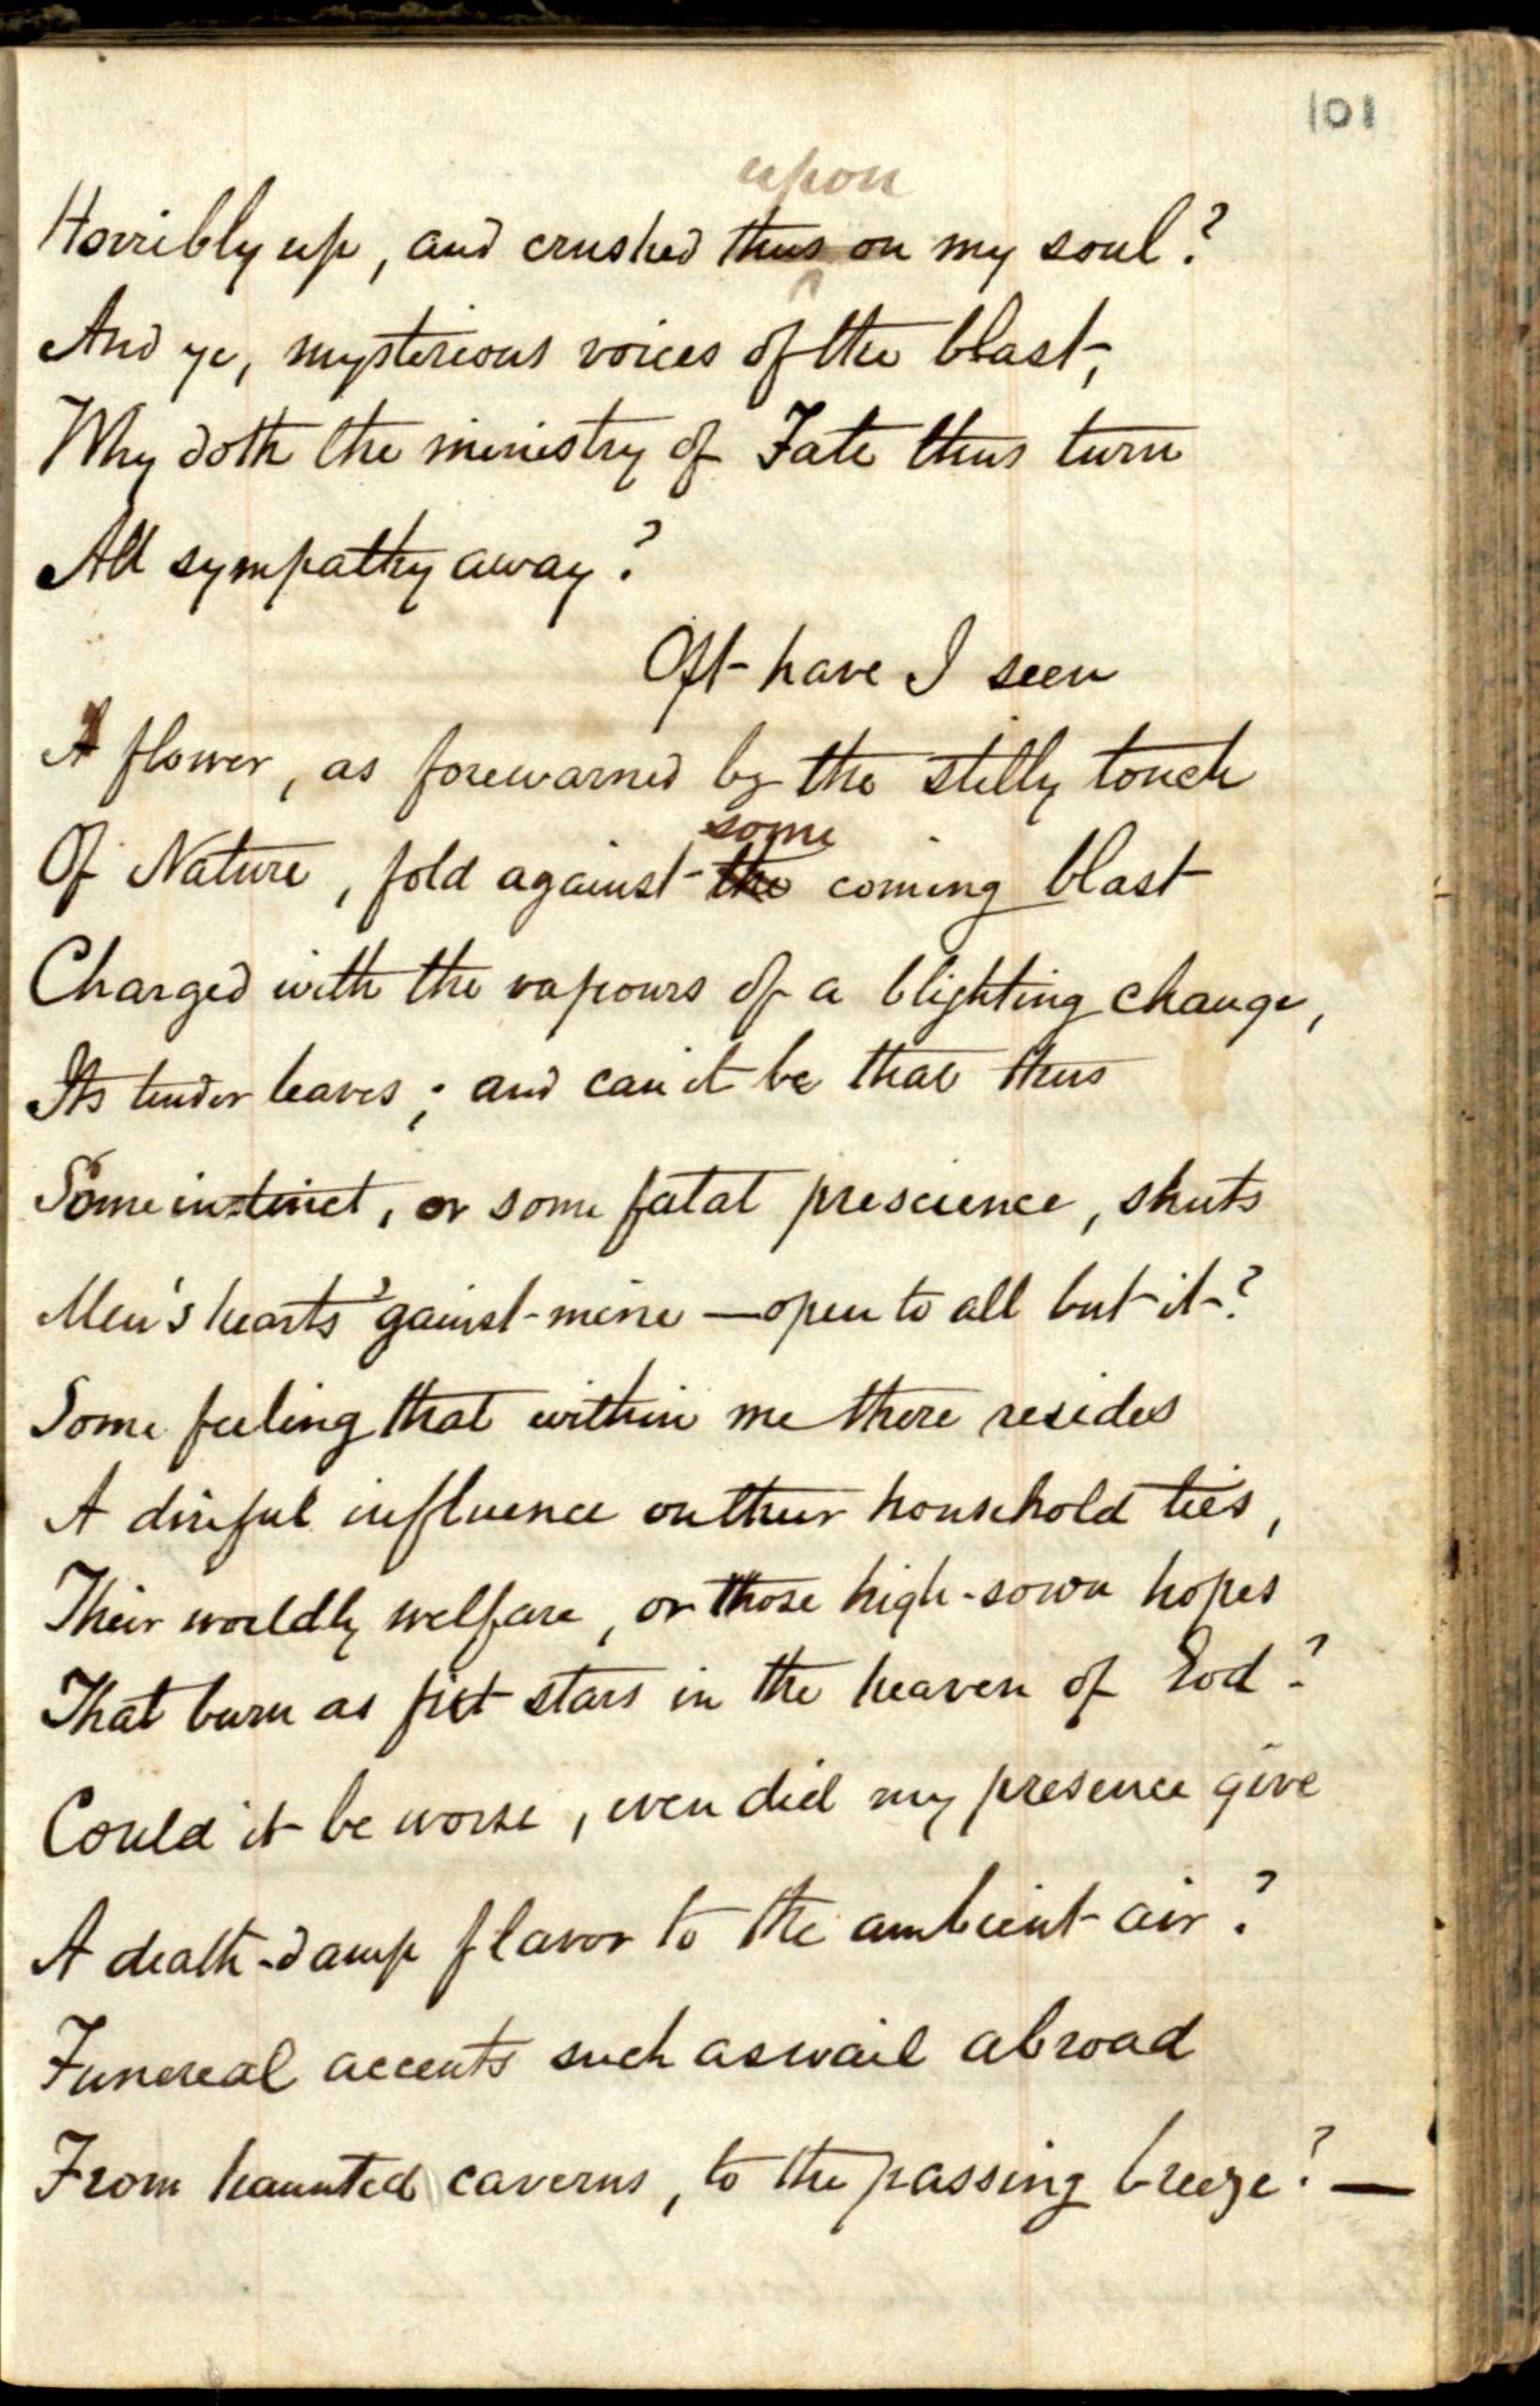 101
upon
Horribly up, and crushed thus on my soul?
And ye, mysterious voices of the blast,
Why doth the ministry of Fate thus turn
All sympathy away?
Oft have I seen
A flower, as forewarned by the stilly touch
some
Of Nature, fold against the coming blast
Charged with the vapours of a blighting change,
Its tender leaves; and can it be that thus
Some instinct, or some fatal prescience, shuts
Men's hearts 'gainst mine — open to all but it?
Some feeling that within me there resides
A direful influence on their household ties,
Their worldly welfare, or those high-sown hopes
That burn as fixt stars in the heaven of God?
Could it be worse, even did my presence give
A death-damp flavor to the ambient air?
Funereal accents such as wail abroad
From haunted caverns, to the passing breeze? —